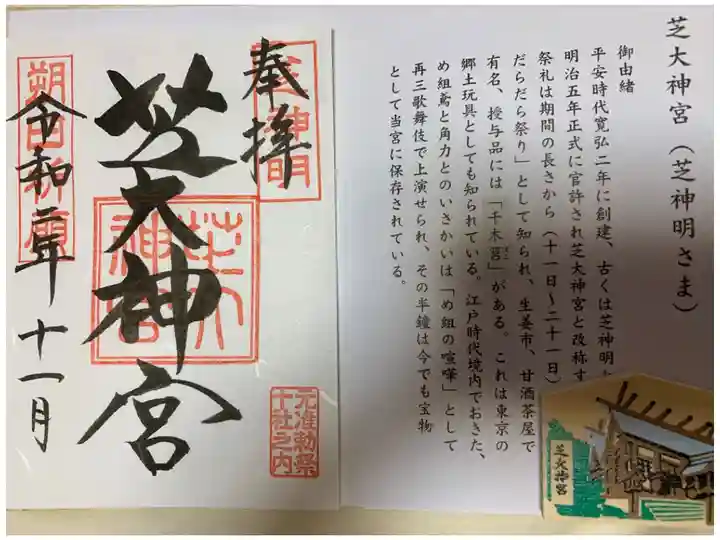 奉拝
芝大神宮
令和二年十一月
朔日祈願
芝神明
芝大神宮
元准勅祭
十社之内
芝大神宮(芝神明さま)
御由緒
平安時代寛弘二年に創建、古くは芝神明
明治五年正式に官許され芝大神宮と改称す
祭礼は期間の長さから(十一日~二十一日)
だらだら祭り」として知られ、生姜市、甘酒茶屋で
有名、授与品には「千木筥」がある。これは東京の
郷土玩具としても知られている。江戸時代境内でおきた、
め組鳶と角力とのいさかいは「め組の喧嘩」として
再三歌舞伎で上演せられ、その半鐘は今でも宝物
として当宮に保存されている。
芝大神宮